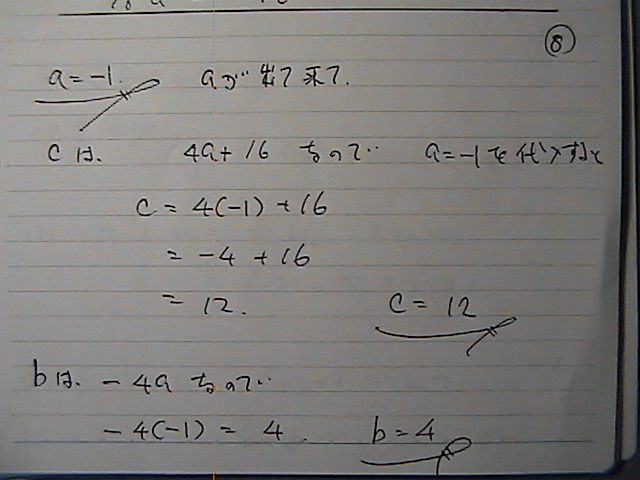 ⑧
a = -1. aが出て来て.
cは. 4a + 16 なので a = -1を代入すると
c = 4(-1) + 16
= -4 + 16
= 12. c = 12
bは. -4a なので
-4(-1) = 4. b = 4